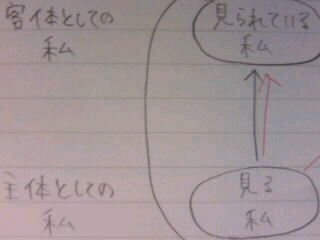 客体としての
私
見られている
私
主体としての
私
見る
私